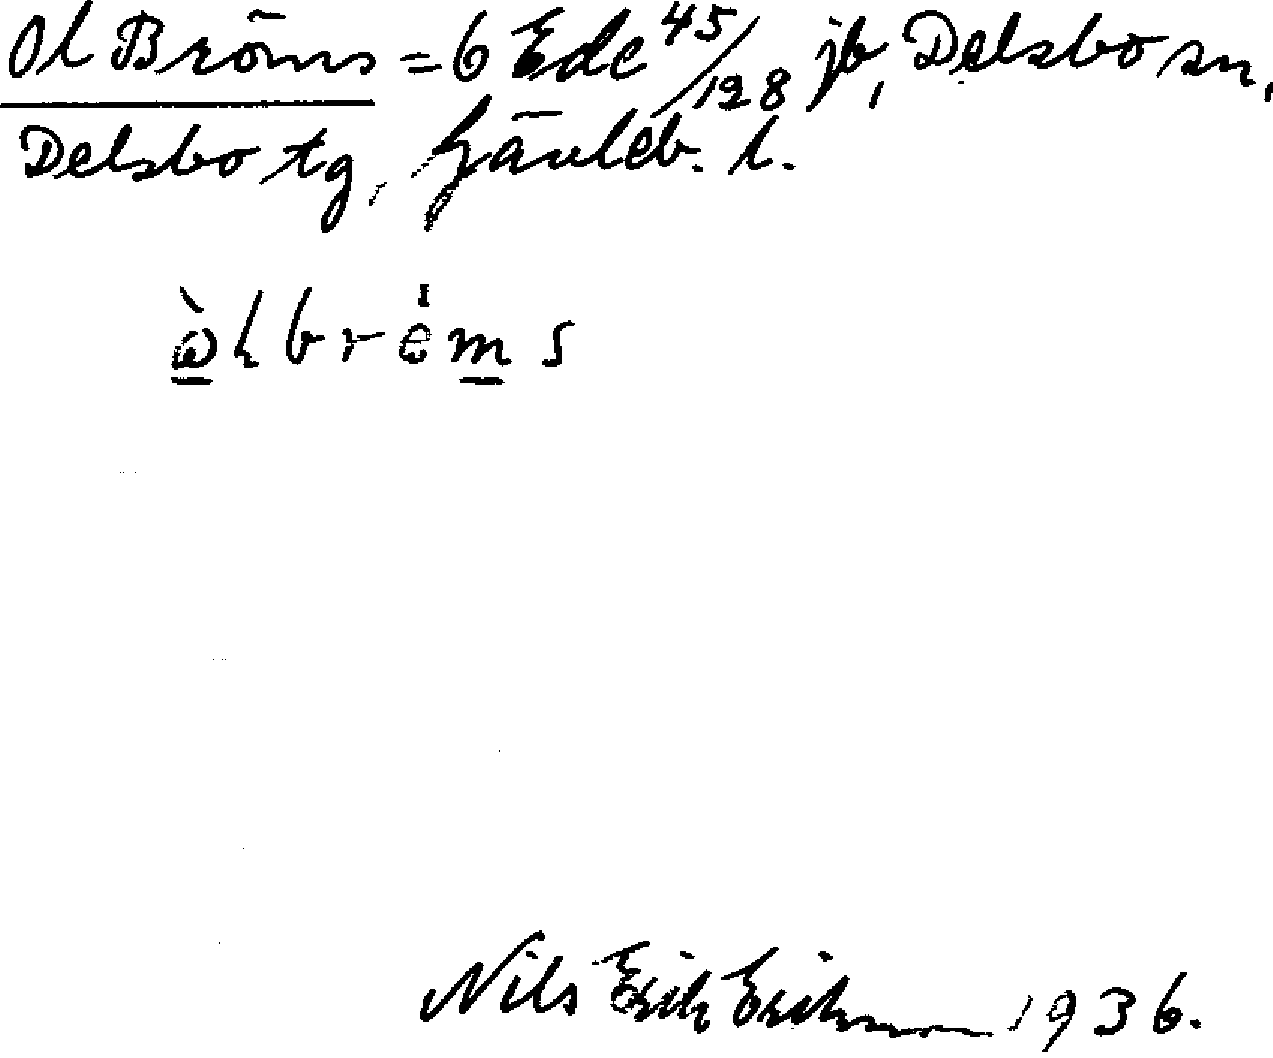 Ol Bröms = 6 Ede 45/128 jb, Delsbo sn,
Delsbo tg, Gävleb. l.
Nils Erik Erikson 1936.